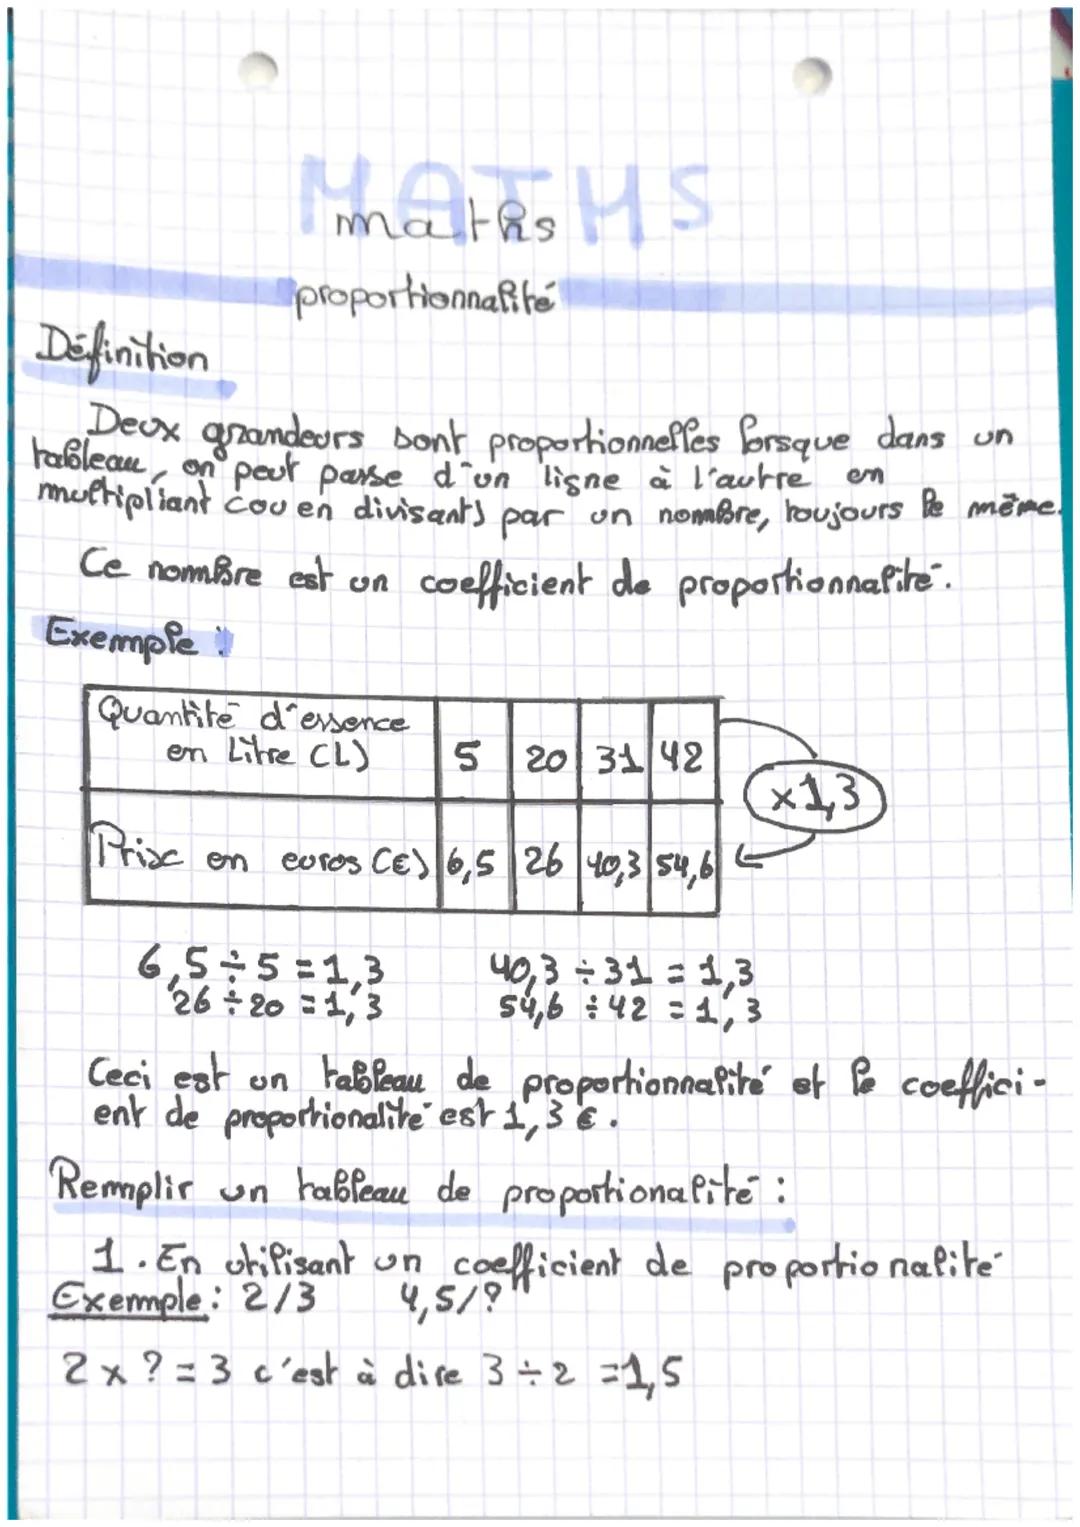 MATHS
maths
proportionnalité
Définition
Deux grandeurs sont proportionnelles lorsque dans un
tableau, on peut passe d'un ligne à l'autre en
multipliant (ou en divisants) par un nombre, toujours le même.
Ce nombre est un coefficient de proportionnalité.
Exemple :
Quantité d'essence
en Litre (L) 5 20 31 42
x1,3
Prix en euros (€) 6,5 26 40,3 54,6
6,5 ÷ 5 = 1,3 40,3 ÷ 31 = 1,3
26 ÷ 20 = 1,3 54,6 ÷ 42 = 1,3
Ceci est un tableau de proportionnalité et le coeffici-
ent de proportionalité est 1,3 €.
Remplir un tableau de proportionalité :
1. En utilisant un coefficient de proportionalité
Exemple : 2/3 4,5/?
2 x ? = 3 c'est à dire 3 ÷ 2 = 1,5